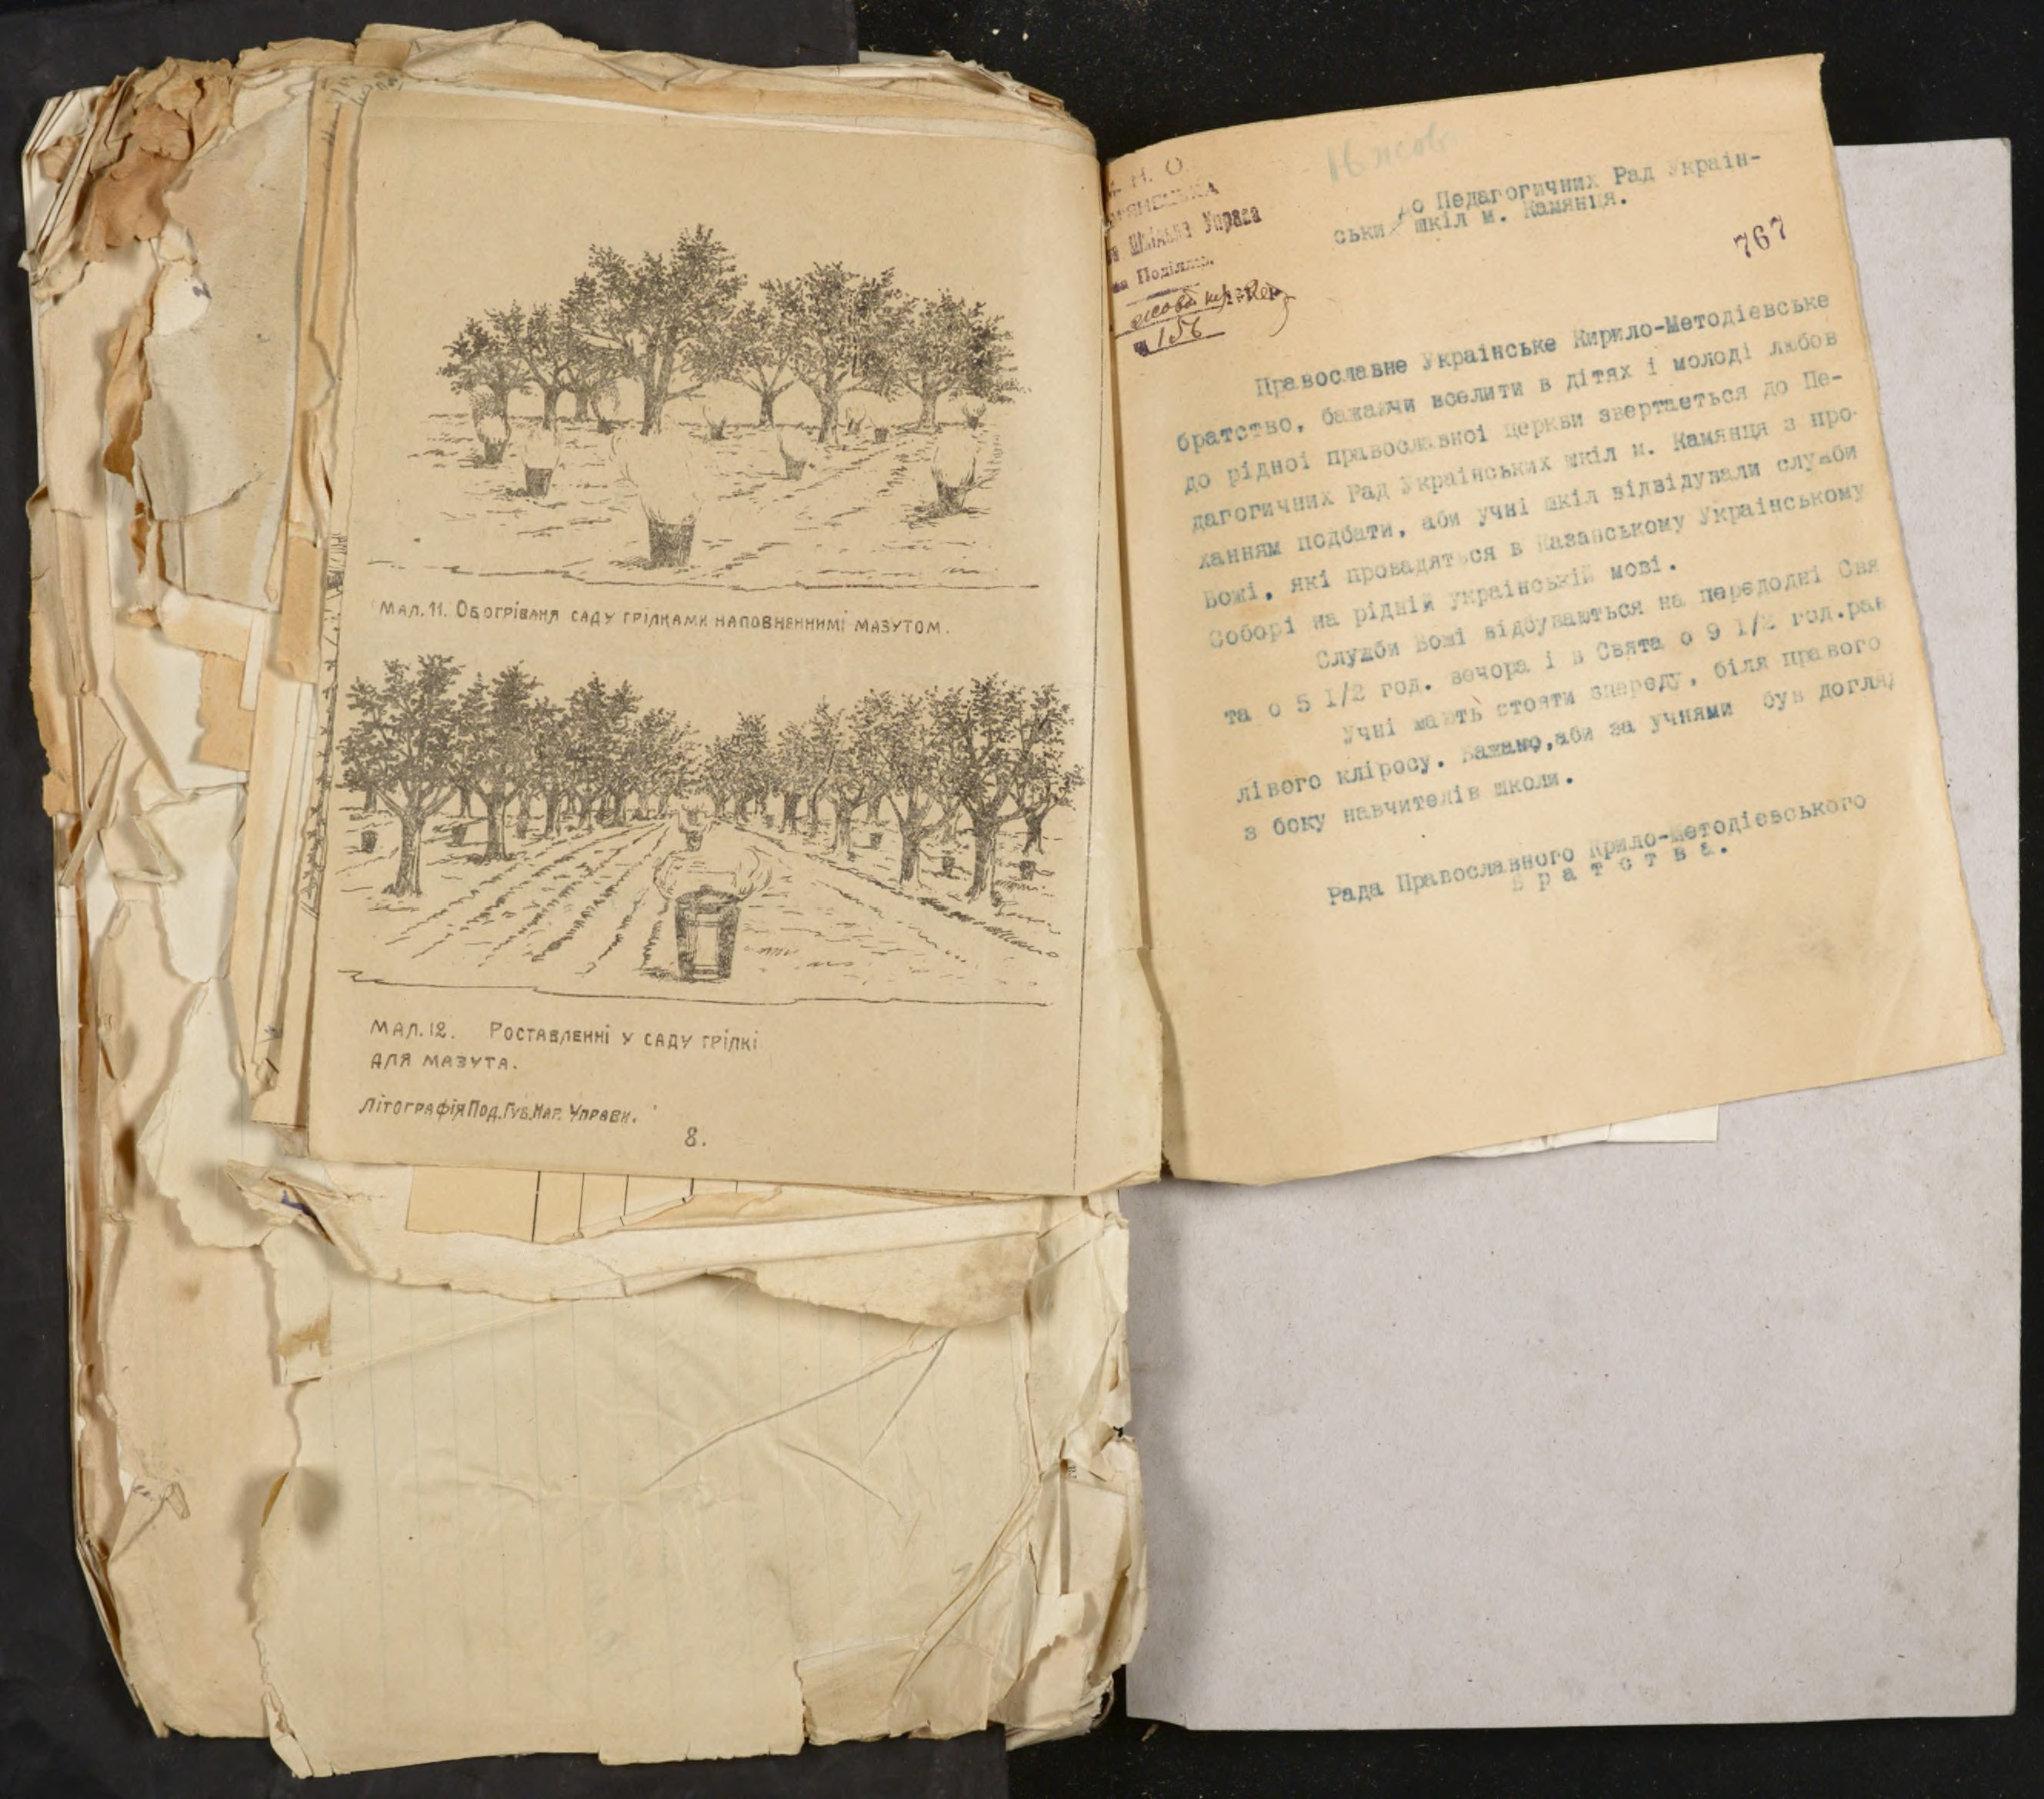 Мал. 11. Обогріваня саду грілками наповненнимі мазутом.
Мал. 12. Роставленні у саду грілкі
для мазута.
Літографія Под. Губ. Нар. Управи.
8.
16 жов
Н. О.
Шкільна Управа
на Поділлю.
156
до Педагогичних Рад Украін-
ських шкіл м. Камянця.
767
Православне Украінське Кирило-Методіевське
братство, бажаючи вселити в дітях і молоді любов
до рідноі православноі церкви звертаеться до Пе-
дагогичних Рад Украінських шкіл м. Камянця з про-
ханням подбати, аби учні шкіл відвідували служби
Божі, які провадяться в Казанському Украінському
Соборі на рідній украінській мові.
Служби Божі відбуваються на передодні Свя
та о 5 1/2 год. вечора і в Свята о 9 1/2 год. ран
Учні мають стояти спереду, біля правого
лівого кліросу. Бажано, аби за учнями був догляд
з боку навчителів школи.
Рада Православного Крило-Методіевського
Б р а т с т в а.